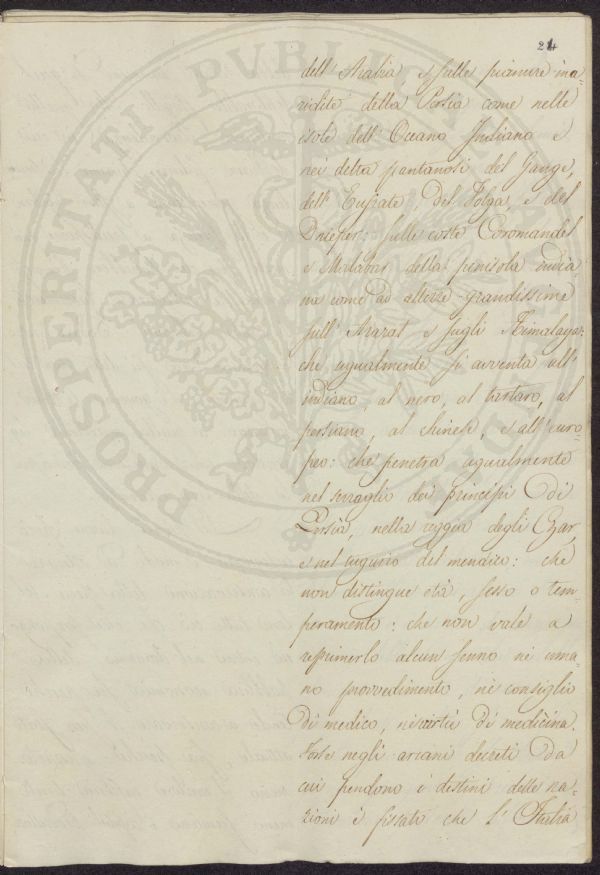 24
dell' Arabia, e sulle pianure ina-
ridite della Persia come nelle
isole dell' Oceano Indiano e
nei delta pantanosi del Gange,
dell' Eufrate del Volga, e del
Dnieper: sulle coste Coromandel
e Malabar della penisola india-
na come ad altezze grandissime
sull' Ararat e sugli Himalaya:
che ugualmente si avventa all'
indiano, al nero, al tartaro, al
persiano, al chinese, e all' euro-
peo: che penetra ugualmente
nel serraglio dei principi di
Persia, nella reggia degli Czar,
e nel tugurio del mendico: che
non distingue età, sesso o tem-
peramento: che non vale a
reprimerlo alcun senno nè uma-
no provvedimento, nè consiglio
di medico, nè virtù di medicina.
Forse negli arcani decreti da
cui pendono i destini delle na-
zioni è fissato che l' Italia
PROSPERITATI PVBLICAE